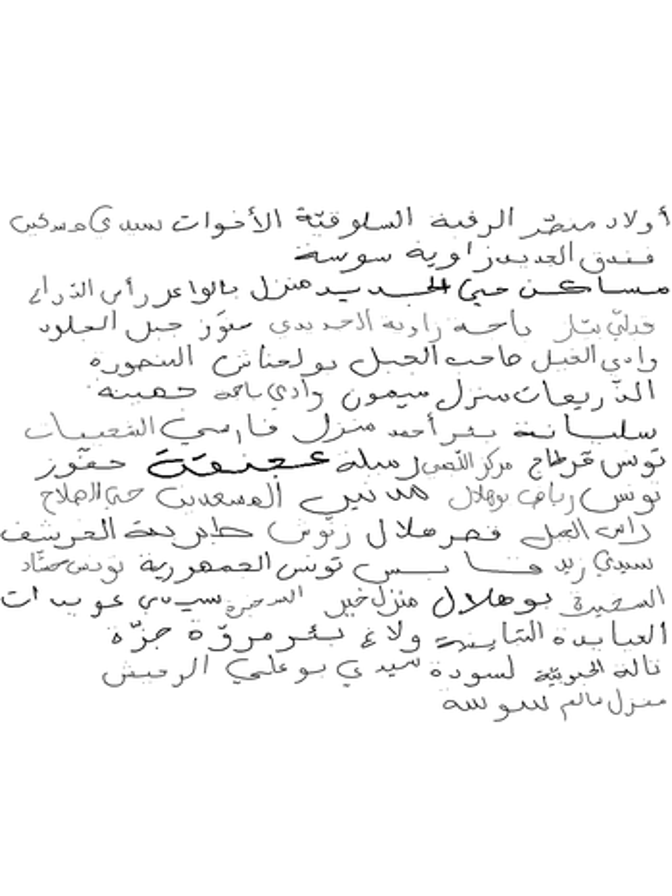 أولاد منصّر الرقبة السلوقيّة الأخوات سيدي مسكين
فندق الجديد زاوية سوسة
مساكن حي الجديد منزل بالواعر رأس الذراع
باجة زاوية الجديدي حفّوز جبل الجلود
وادي الخيل صاحب الجبل بولحناش المنصورة
الذّريعات منزل ميمون وادي باجة
سليانة بئر أحمد منزل فارسي الشعيبات
تونس قرطاج مركز اللّجمي رميلة عجنقة حفّوز
تونس رياض بوهلال مدنين المسعدين حيّ الصلاح
راس الجبل قصر هلال زنّوش طابربة الخرشف
سيدي زيد قابس تونس الجمهورية تونس حشّاد
الصخيرة بوهلال منزل خير الصخيرة سيدي عويدات
العبابدة الثيابنية ولاغ بئر مروّة جزّة
تالة الحبوبيّة لسودة سيدي بوعلي الرقيش
منزل سالم سوسة